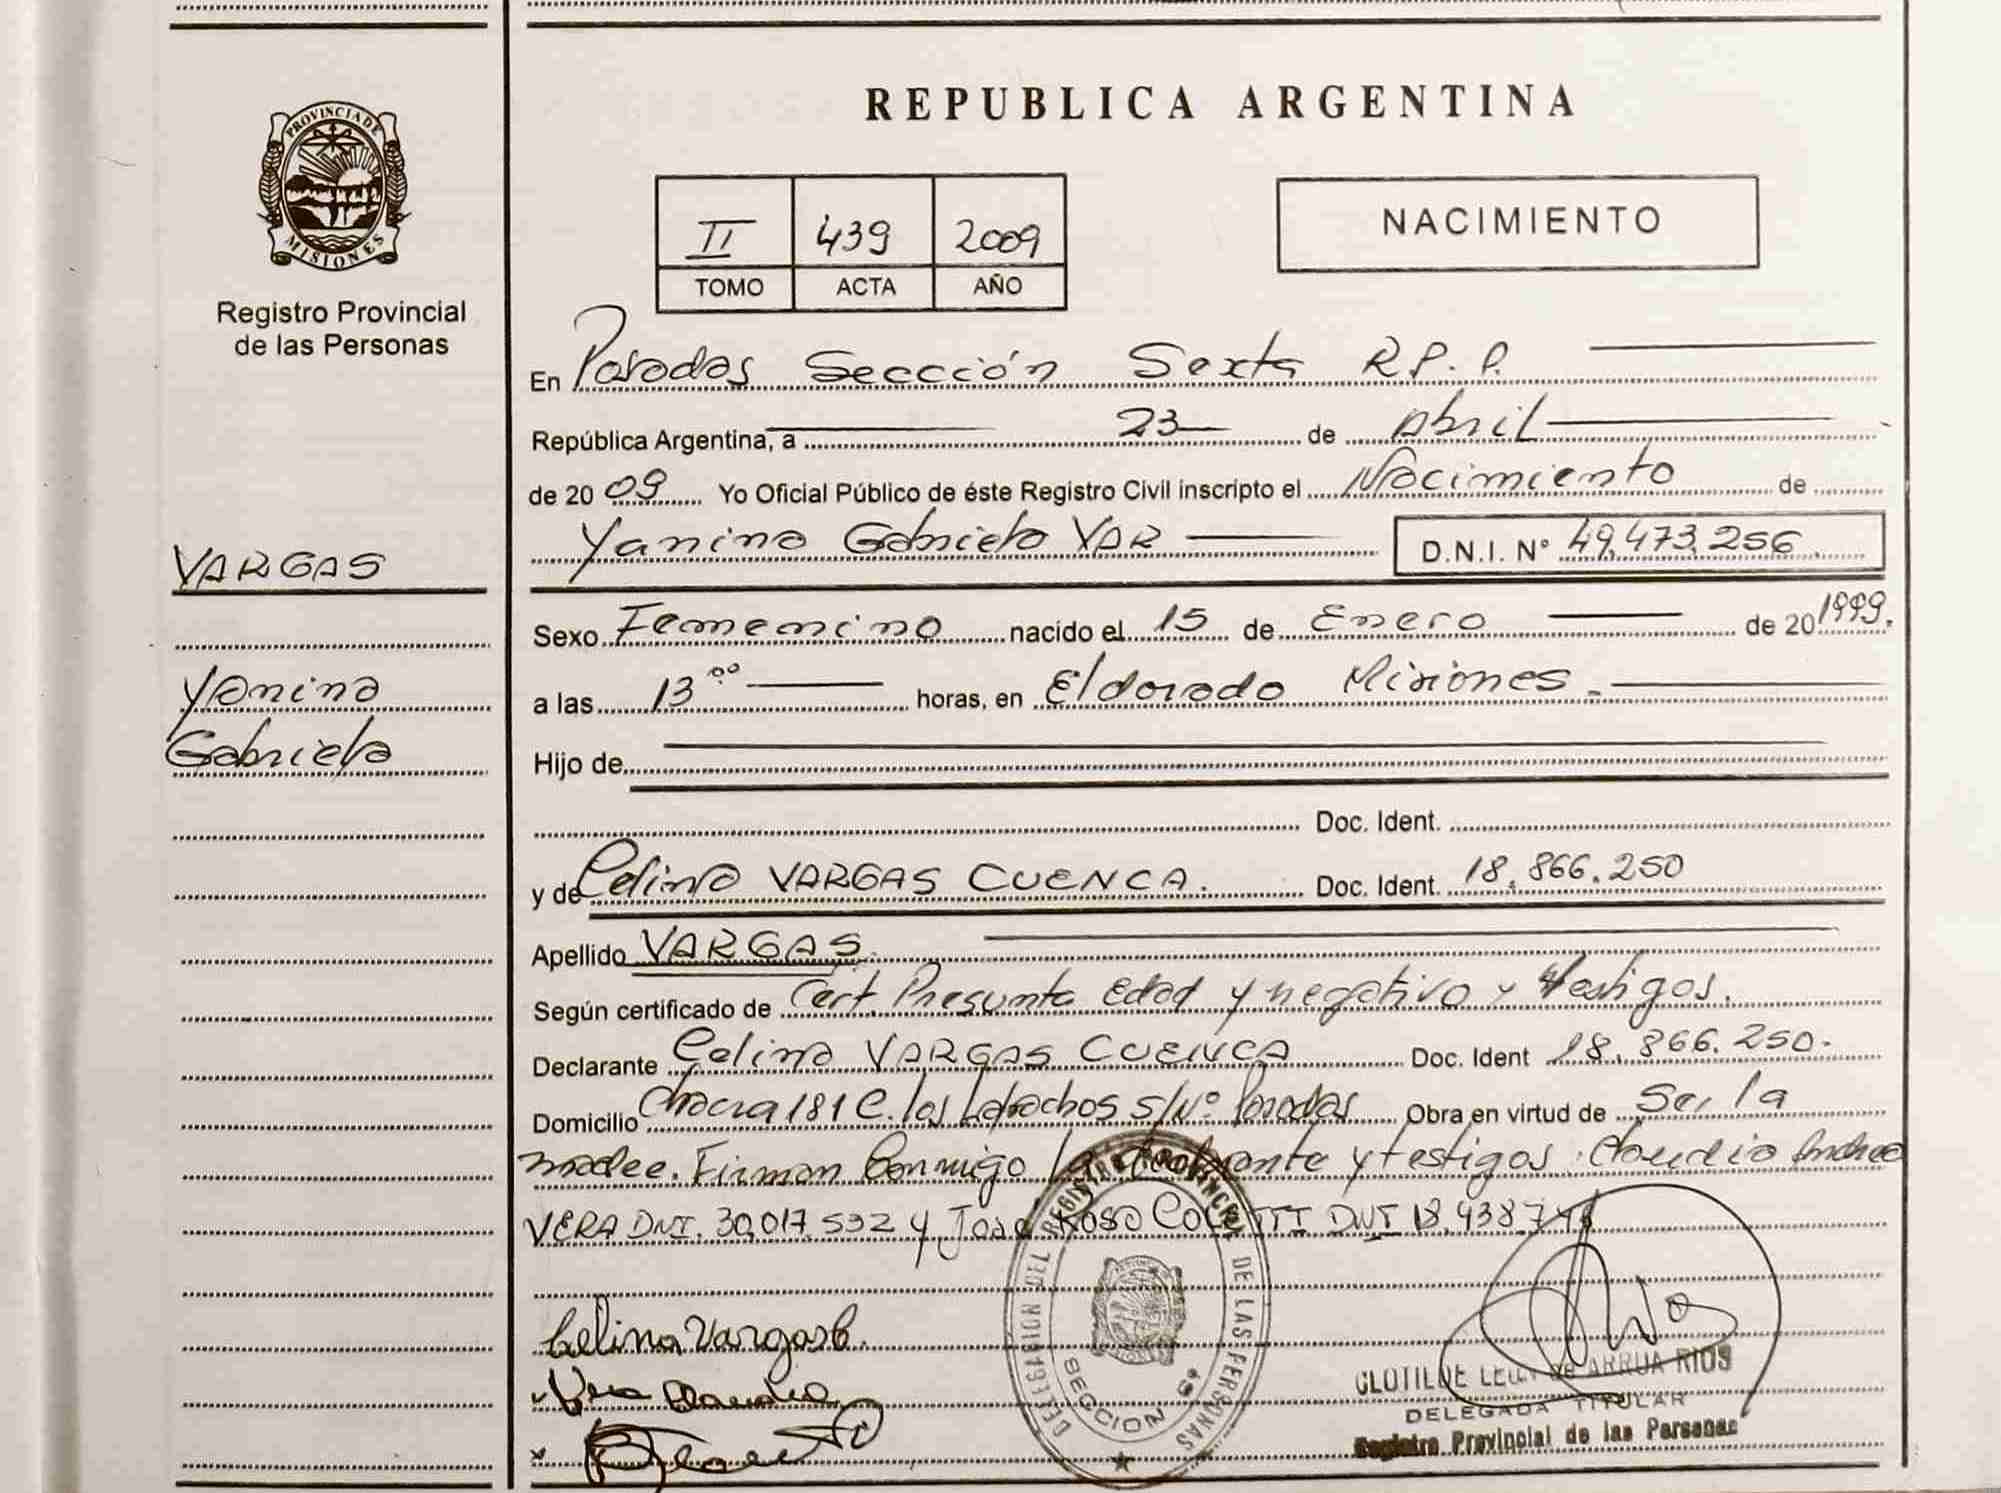 PROVINCIA DE
MISIONES
Registro Provincial
de las Personas
VARGAS
Yanina
Gabriela
REPUBLICA ARGENTINA
II 439 2009
TOMO ACTA AÑO
NACIMIENTO
En Posadas Sección Sexta R.P.P.
República Argentina, a 23 de Abril
de 20 09 Yo Oficial Público de éste Registro Civil inscripto el Nacimiento de
Yanina Gabriela VAR D.N.I. N° 49.473.256
Sexo Femenino nacido el 15 de Enero de 20 1999.
a las 13 ºº horas, en Eldorado Misiones.
Hijo de
Doc. Ident.
y de Celina VARGAS CUENCA. Doc. Ident. 18.866.250
Apellido VARGAS.
Según certificado de Cert. Presunta edad y negativo y testigos.
Declarante Celina VARGAS CUENCA Doc. Ident 18.866.250.
Domicilio Chacra 181 C. los Lapachos s/Nº Posadas Obra en virtud de Ser la
madre. Firman Conmigo la declarante y testigos: Claudio Andrea
VERA DNI. 30.017.532 y José DNI 18.938.748
Celina Vargas C.
Vera Claudia
DELEGACION DEL REGISTRO PROVINCIAL DE LAS PERSONAS
SECCION 6ª
CLOTILDE de ARRUA RIOS
DELEGADA TITULAR
Registro Provincial de las Personas